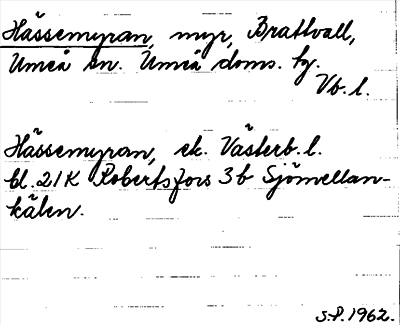 Hässemyran, myr, Brattvall,
Umeå sn. Umeå doms. tg.
Vb. l.
Hässemyran, ek. Västerb. l.
bl. 21K Robertsfors 3b Sjömellan-
kälen.
S.P. 1962.